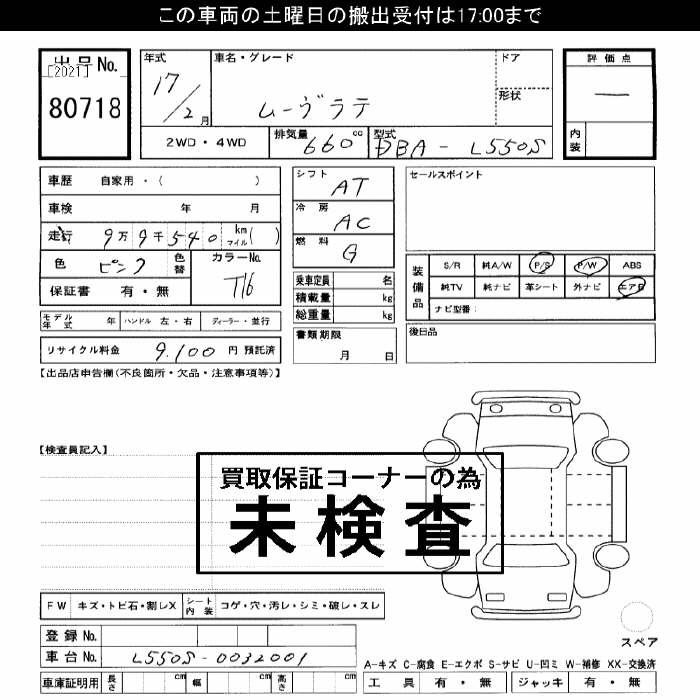 この車両の土曜日の搬出受付は17:00まで
出品No.
[2021]
80718
年式
17/2月
車名・グレード
ムーヴラテ
ドア
形状
評価点
—
内装
2WD・4WD
排気量 660cc
型式 DBA-L550S
車歴 自家用・( )
車検 年 月
走行 9万9千540 km マイル( )
色 ピンク 色替
カラーNo. T16
保証書 有・無
シフト AT
冷房 AC
燃料 G
乗車定員 名
積載量 kg
総重量 kg
書類期限 月 日
セールスポイント
装備品
S/R 純A/W P/S P/W ABS
純TV 純ナビ 革シート 外ナビ エアB
ナビ型番:
後日品
モデル年式 年 ハンドル 左・右 ディーラー・並行
リサイクル料金 9,100 円 預託済
【出品店申告欄(不良箇所・欠品・注意事項等)】
【検査員記入】
買取保証コーナーの為
未検査
FW キズ・トビ石・割レX シート内装 コゲ・穴・汚レ・シミ・破レ・スレ
登録No.
車台No. L550S-0032001
車庫証明用 長さ cm 幅 cm 高さ cm
スペア
A-キズ C-腐食 E-エクボ S-サビ U-凹ミ W-補修 XX-交換済
工具 有・無 ジャッキ 有・無